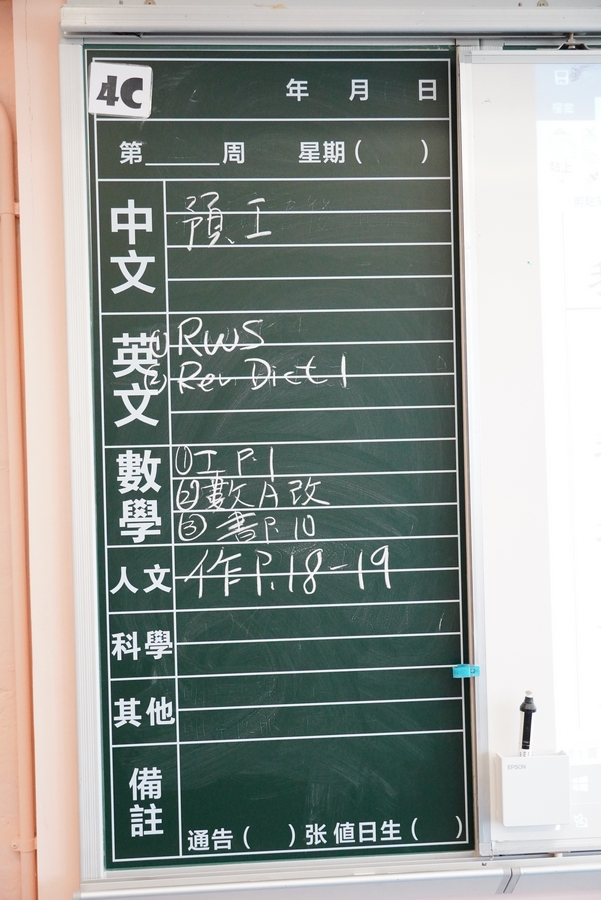 4C
年 月 日
第______周 星期( )
中文
預工
英文
① RWS
② Rev Dict 1
數學
① 工 P.1
② 數A改
③ 書P.10
人文
作P.18-19
科學
其他
備註
通告( )张 值日生( )
EPSON